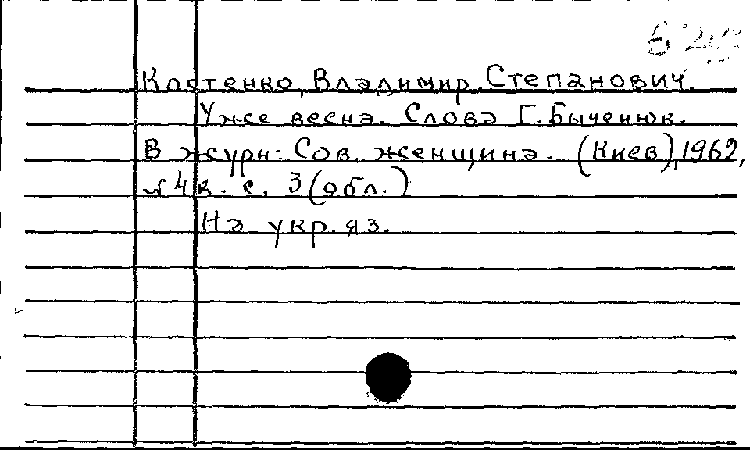 Костенко, Владимир Степанович.
Уже весна. Слова Г. Быченюк.
В журн. Сов. женщина. (Киев), 1962,
№ 4, с. 3 (обл.)
На укр. яз.